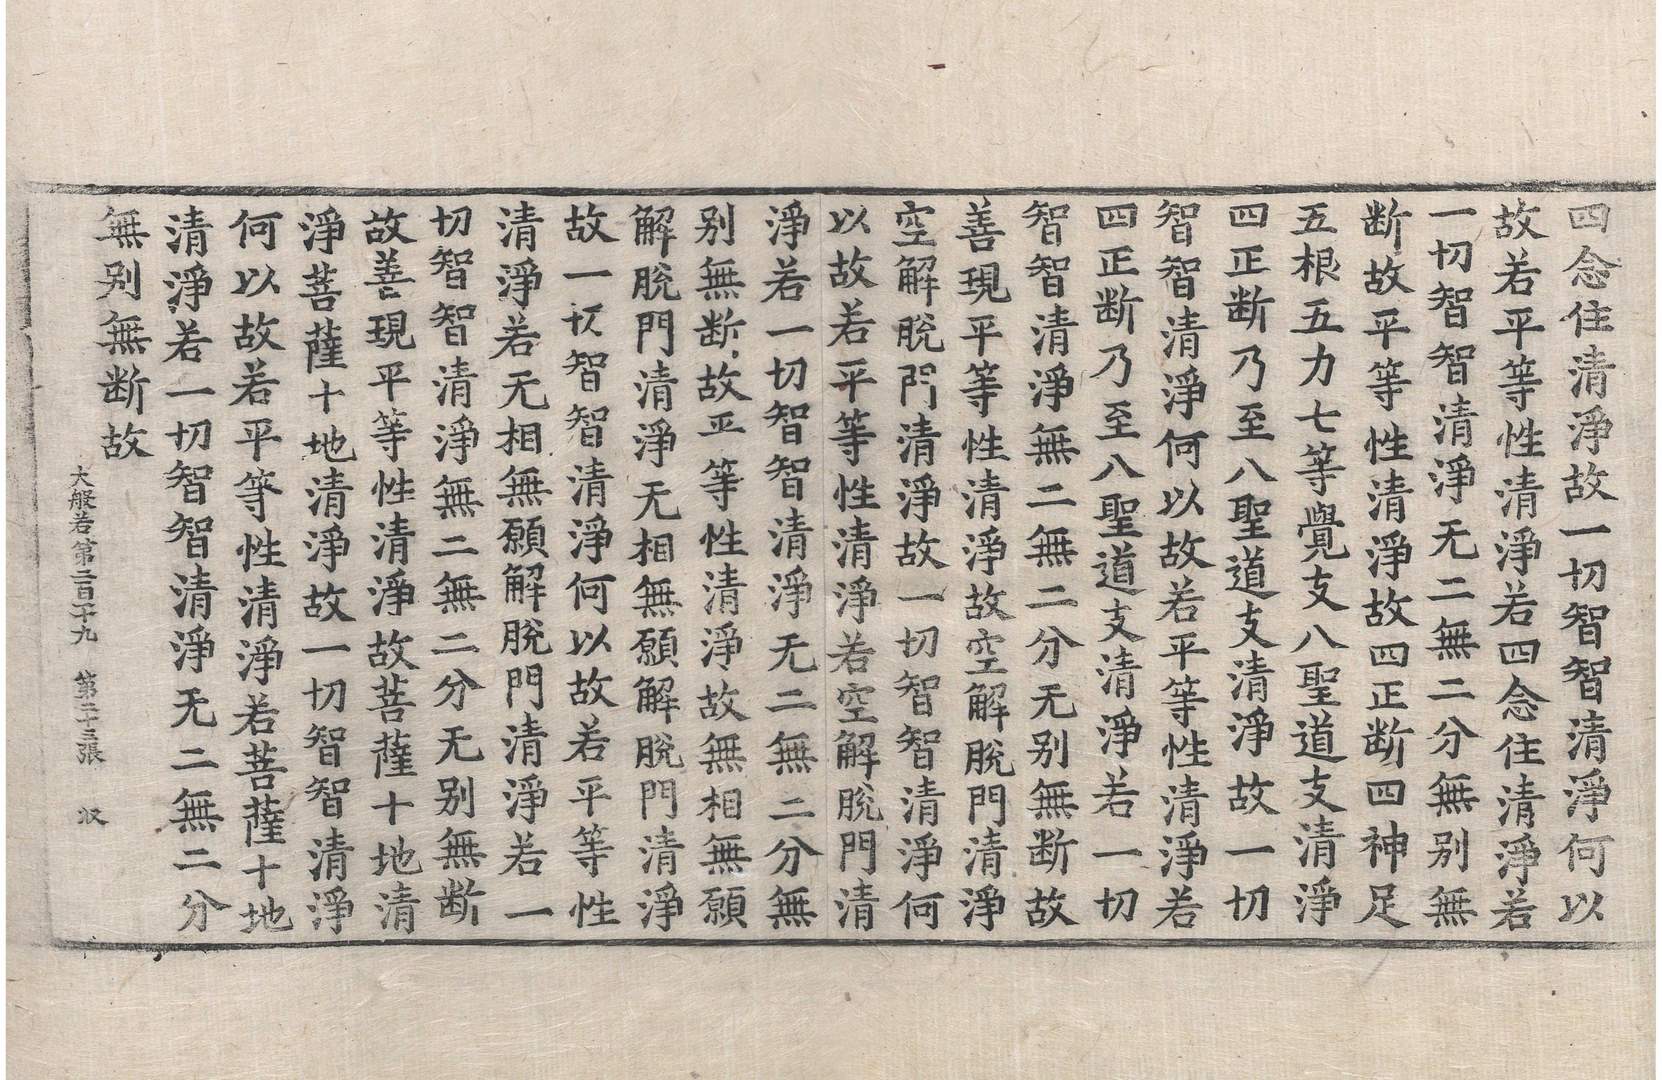 四念住清淨故一切智智清淨何以
故若平等性清淨若四念住清淨若
一切智智清淨无二無二分無别無
断故平等性清淨故四正断四神足
五根五力七等覺支八聖道支清淨
四正断乃至八聖道支清淨故一切
智智清淨何以故若平等性清淨若
四正断乃至八聖道支清淨若一切
智智清淨無二無二分无别無断故
善現平等性清淨故空解脫門清淨
空解脫門清淨故一切智智清淨何
以故若平等性清淨若空解脫門清
淨若一切智智清淨无二無二分無
别無断故平等性清淨故無相無願
解脫門清淨无相無願解脫門清淨
故一切智智清淨何以故若平等性
清淨若无相無願解脫門清淨若一
切智智清淨無二無二分无别無断
故善現平等性清淨故菩薩十地清
淨菩薩十地清淨故一切智智清淨
何以故若平等性清淨若菩薩十地
清淨若一切智智清淨无二無二分
無别無断故
大般若第二百一十九 第二十三張 収